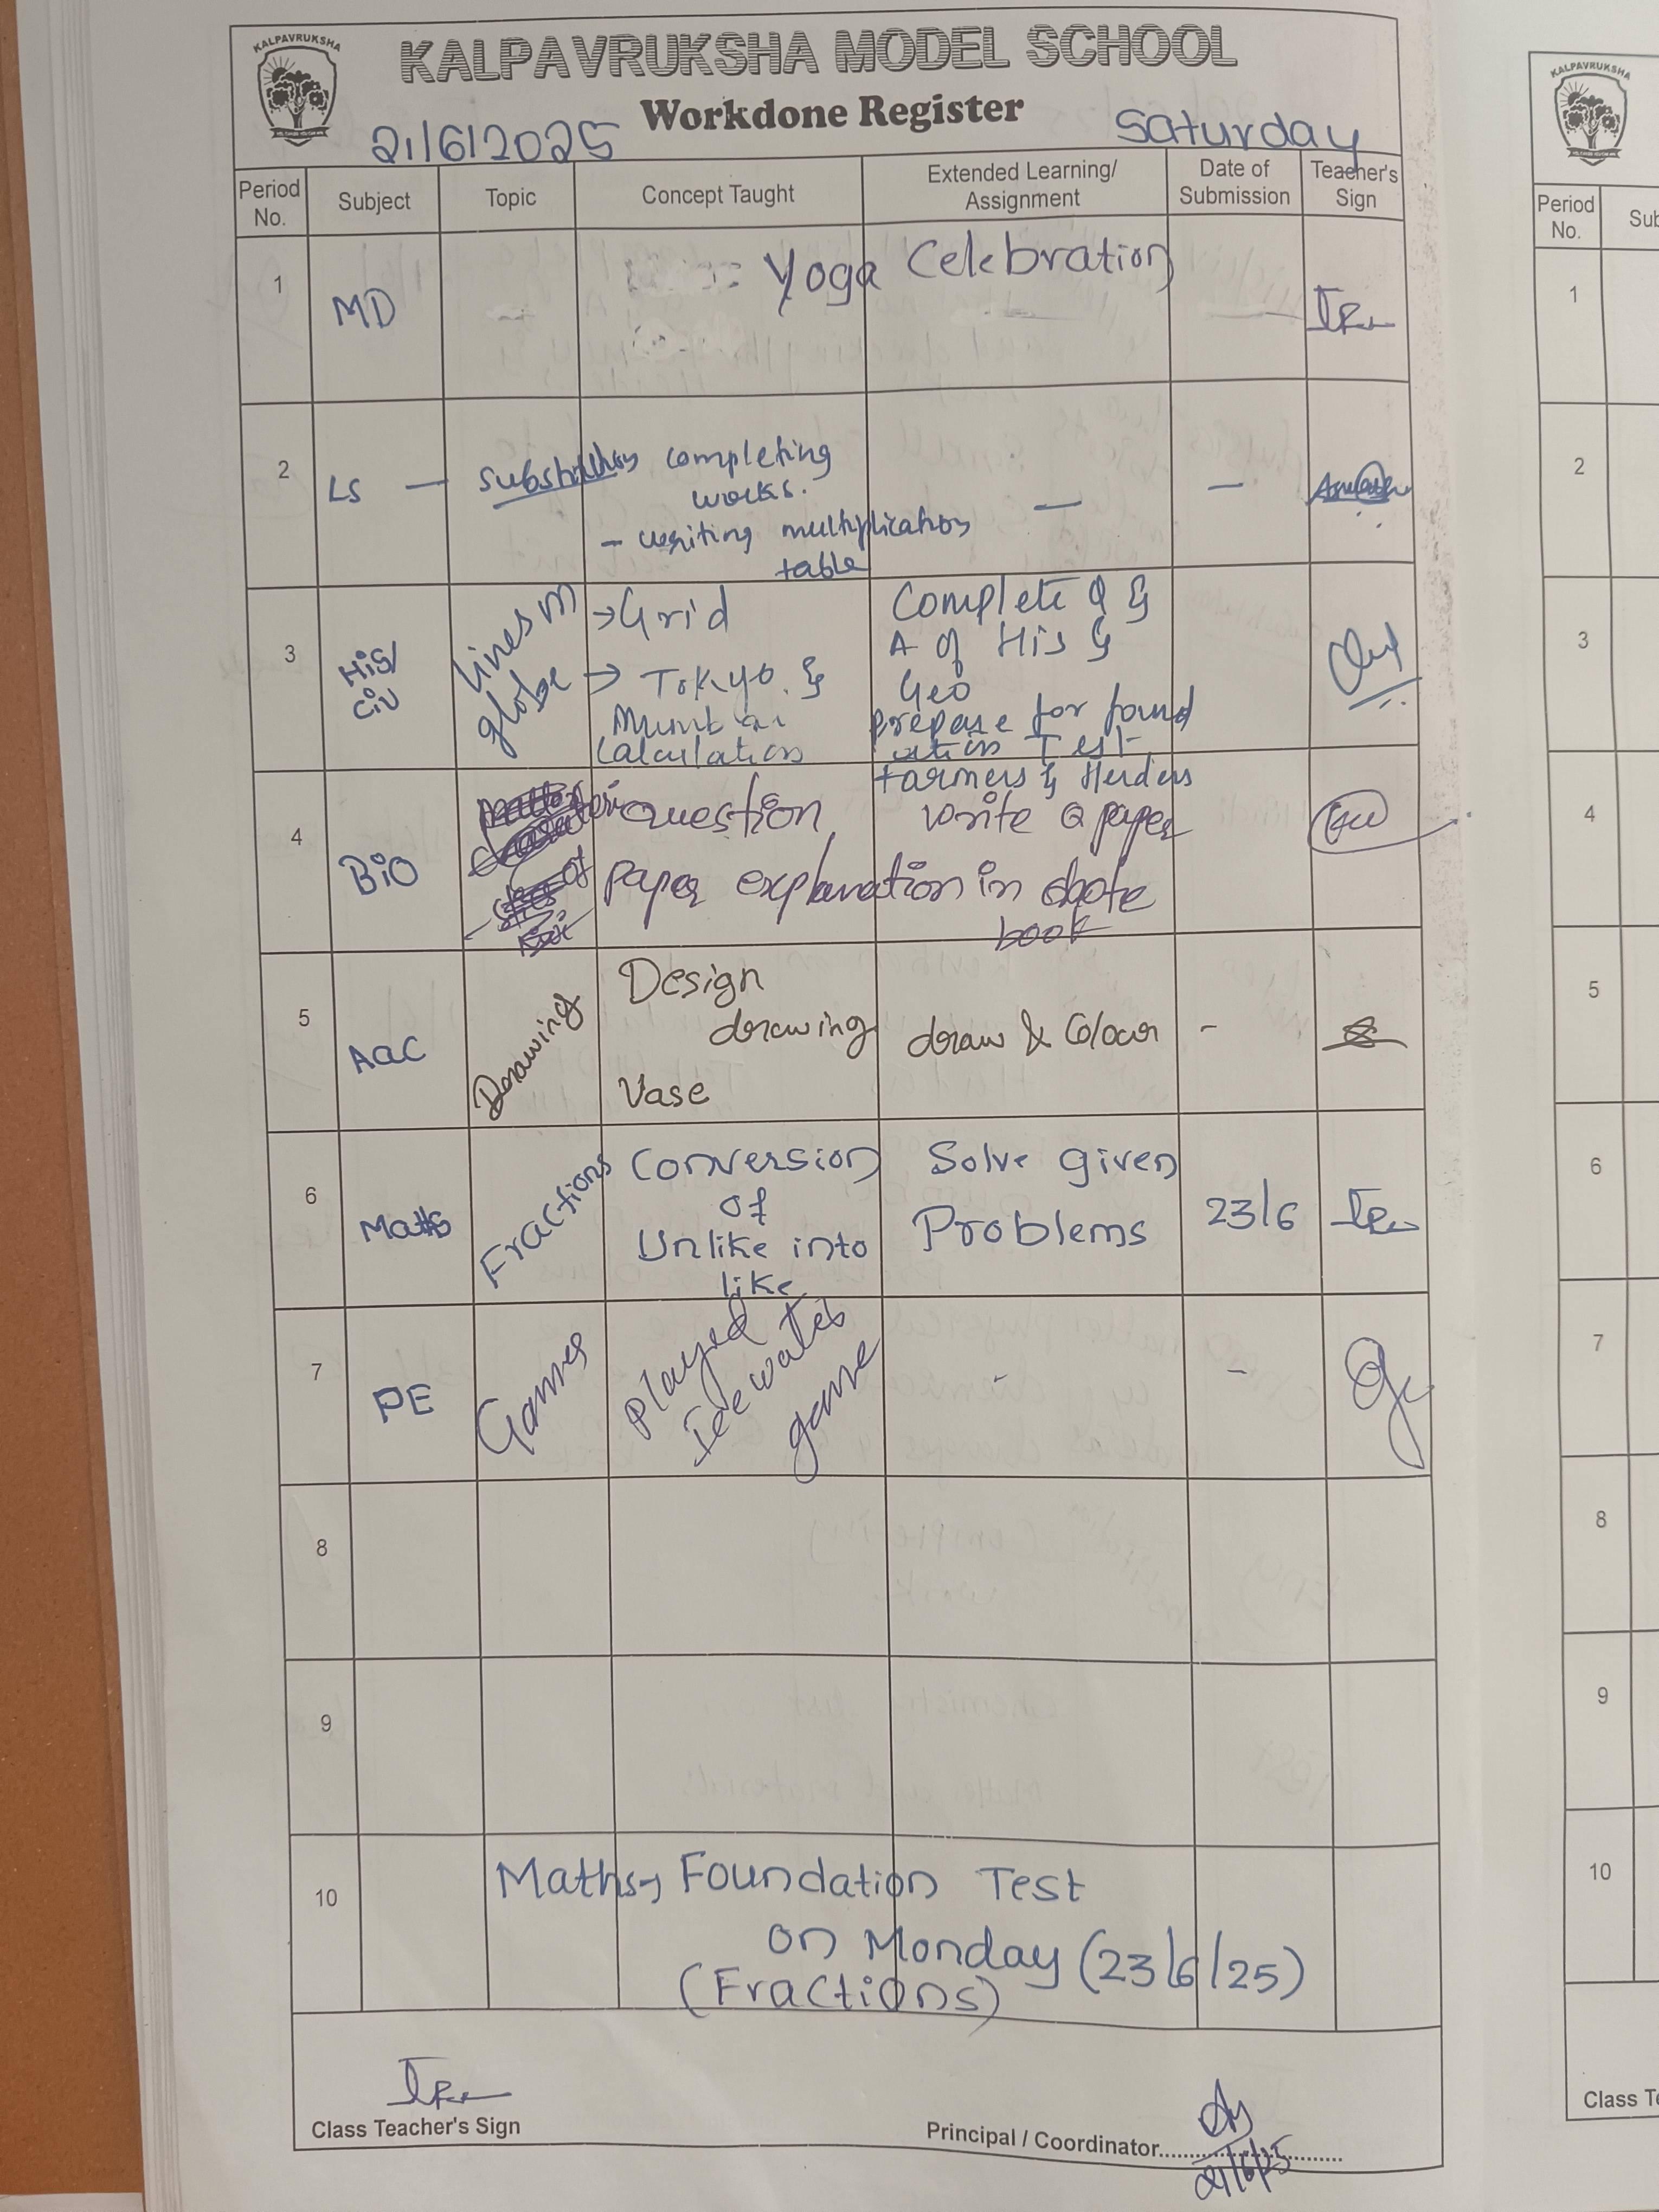 KALPAVRUKSHA
KALPAVRUKSHA MODEL SCHOOL
Workdone Register
21/6/2025
Saturday
Period No.
Subject
Topic
Concept Taught
Extended Learning/
Assignment
Date of
Submission
Teacher's
Sign
1
MD
Yoga Celebration
2
LS —
substitution completing
works.
– writing multiplication
table
—
—
3
His/
civ
lines m
globe
→ Grid
→ Tokyo &
Mumbai
Calculation
Complete Q &
A of His &
Geo
prepare for found
ation Test
Farmers & Herders
4
BiO
question
Paper explanation
write Q paper
in note
book
5
Aac
Drawing
Design
drawing
Vase
draw & Colour
-
6
Maths
Fractions
Conversion
of
Unlike into
like
Solve given
Problems
23/6
7
PE
Games
Played
Ice water
game
-
-
8
9
10
Maths → Foundation Test
on Monday (23/6/25)
(Fractions)
Class Teacher's Sign
Principal / Coordinator
21/6/25
KALPAVRUKSHA
Period
No.
Sub
1
2
3
4
5
6
7
8
9
10
Class Te